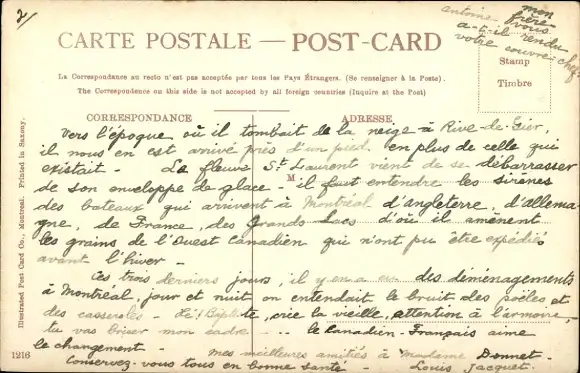 2/
mon
antoine frère
a-t-il vous
rendu
votre couvre-chef
CARTE POSTALE — POST-CARD
Stamp
Timbre
La Correspondance au recto n'est pas acceptée par tous les Pays Étrangers. (Se renseigner à la Poste).
The Correspondence on this side is not accepted by all foreign countries (Inquire at the Post)
CORRESPONDANCE
ADRESSE
M
Vers l'époque où il tombait de la neige à Rive-de-Gier,
il nous en est arrivé près d'un pied, en plus de celle qui
existait. - Le fleuve St Laurent vient de se débarrasser
de son enveloppe de glace - il faut entendre les sirènes
des bateaux qui arrivent à Montréal d'Angleterre, d'Allema-
gne, de France, des Grands Lacs d'où il amènent
les grains de l'Ouest Canadien qui n'ont pu être expédiés
avant l'hiver -
Ces trois derniers jours, il y en a eu des déménagements
à Montréal, jour et nuit on entendait le bruit des poêles et
des casseroles - crie la vieille, attention à l'armoire,
tu vas briser mon cadre - le Canadien-Français aime
le changement -
Mes meilleures amitiés à Madame Donnet -
Conservez-vous tous en bonne santé - Louis Jacquet.
Illustrated Post Card Co., Montreal. Printed in Saxony.
1216